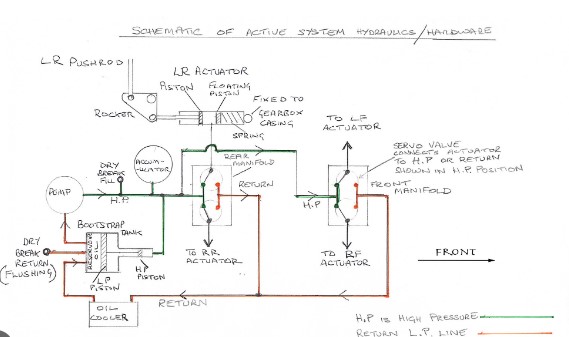 SCHEMATIC OF ACTIVE SYSTEM HYDRAULICS/HARDWARE
LR PUSHROD
LR ACTUATOR
PISTON
FLOATING
PISTON
ROCKER
FIXED TO
GEARBOX
CASING
SPRING
TO LF
ACTUATOR
SERVO VALVE
CONNECTS ACTUATOR
TO H.P OR RETURN
SHOWN IN H.P POSITION
DRY
BREAK
FILL
ACCUM-
ULATOR
REAR
MANIFOLD
RETURN
PUMP
H.P.
H.P
FRONT
MANIFOLD
BOOTSTRAP
TANK
RESERVOIR
DRY
BREAK
RETURN
(FLUSHING)
HP
PISTON
LP
PISTON
TO RR
ACTUATOR
TO RF
ACTUATOR
FRONT
OIL
COOLER
RETURN
H.P IS HIGH PRESSURE
RETURN L.P. LINE